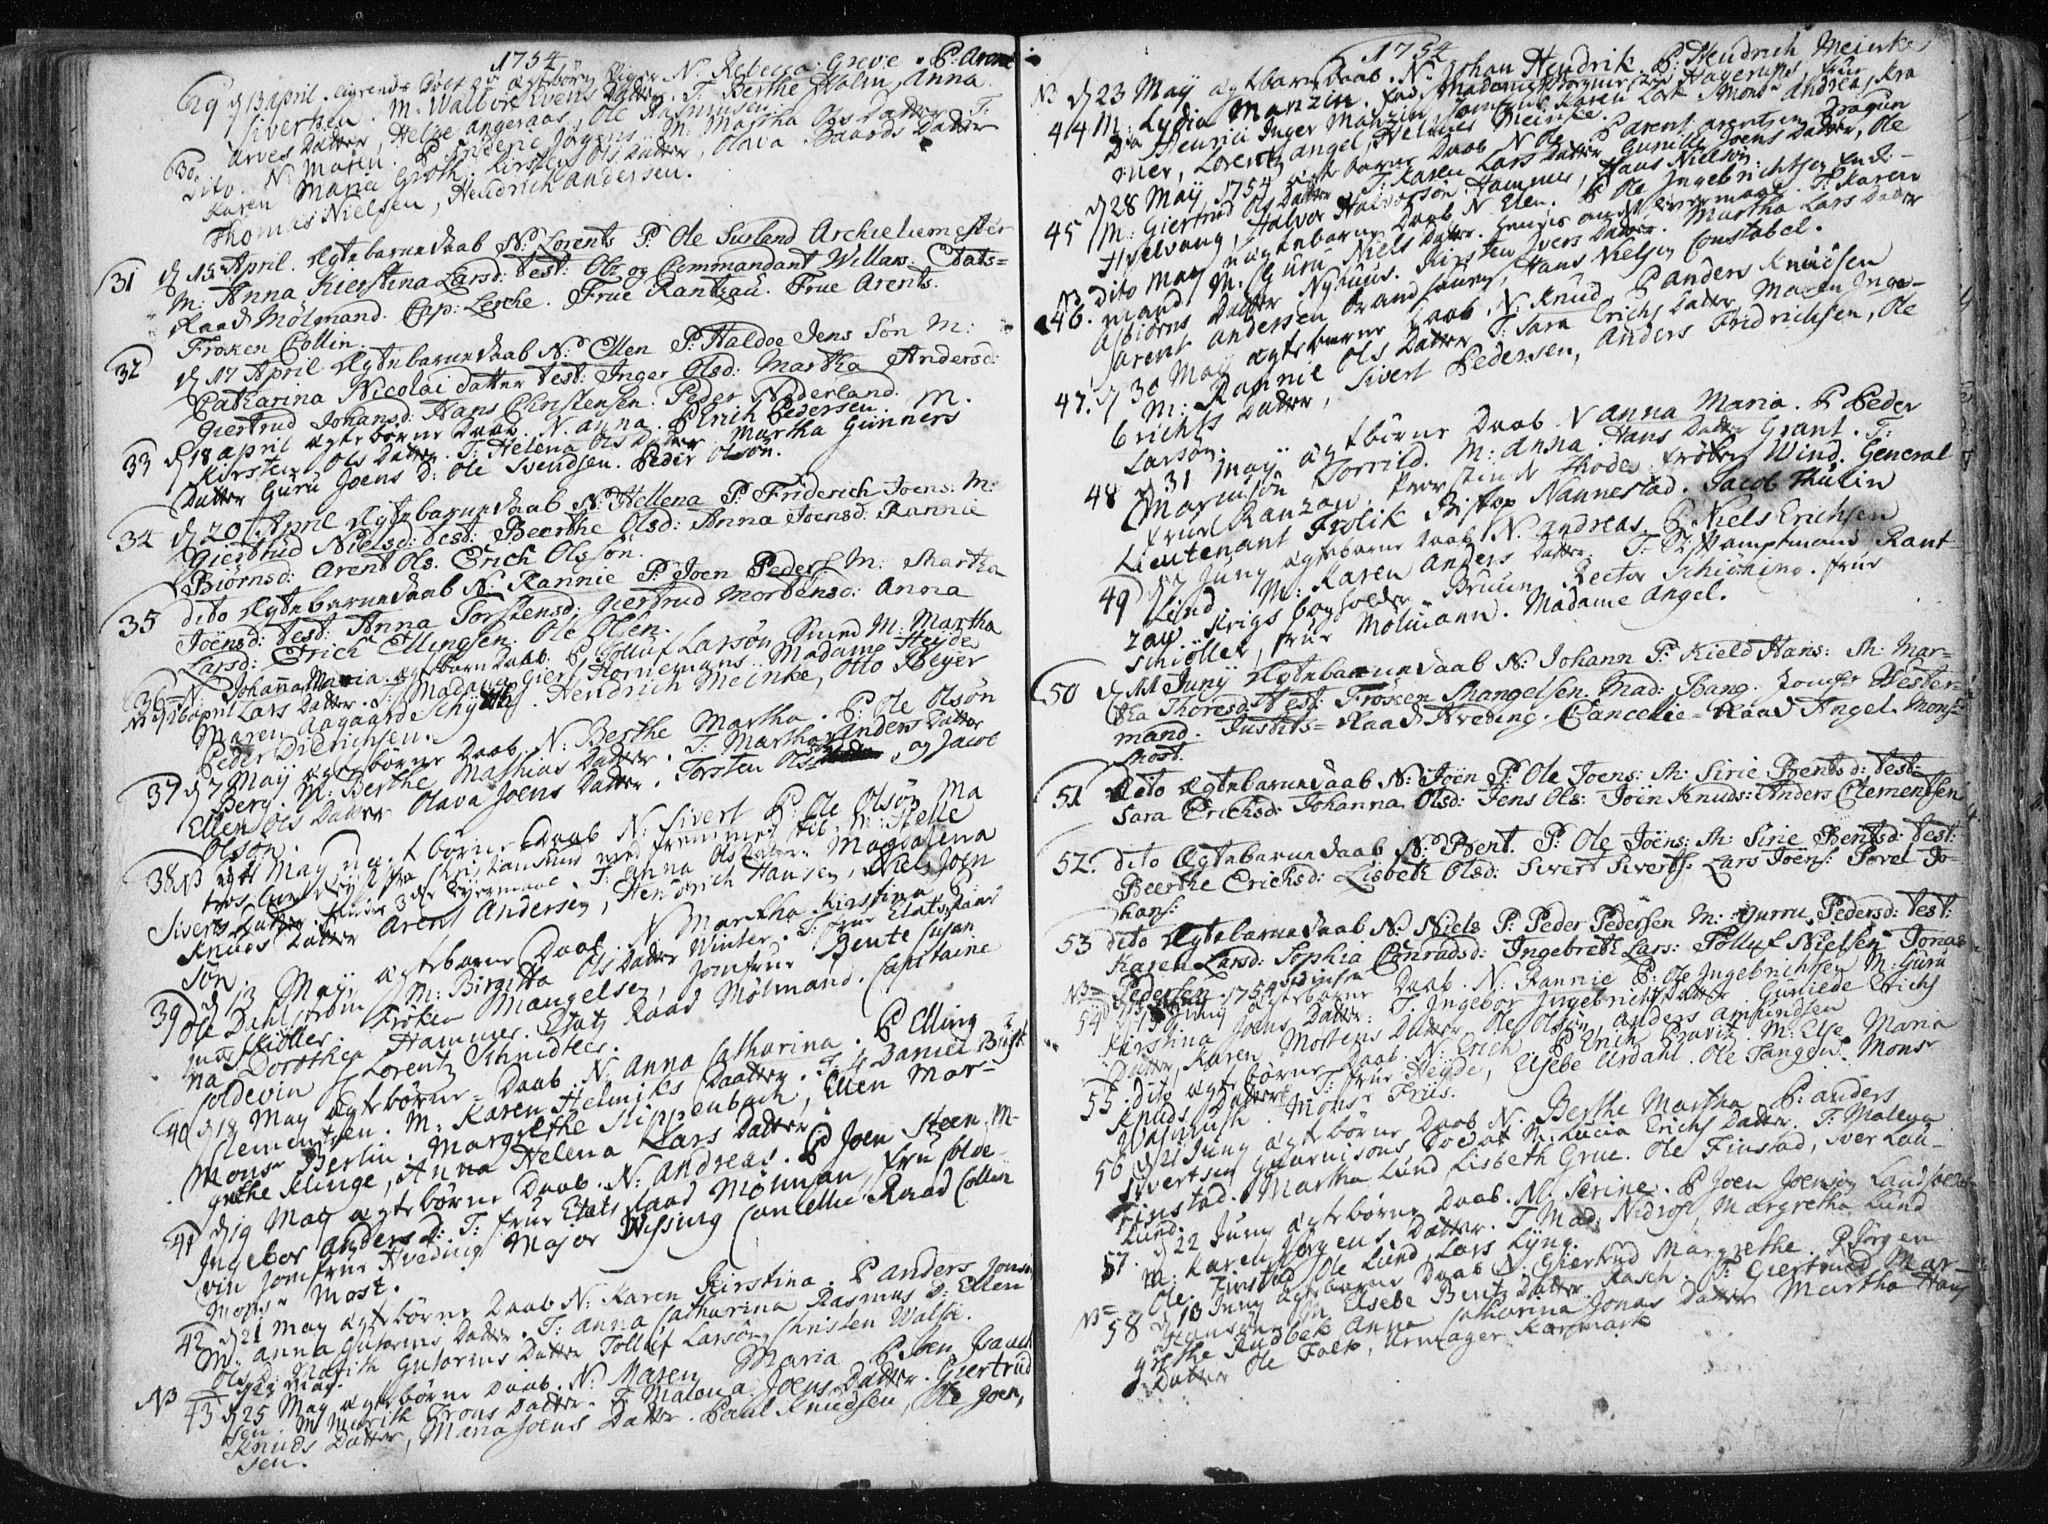 1754
29 d 13 april. ægtebörn Piger N. Rebecca Greve. P: Arent
Sivertsen. M: Walborg Evens Datter. T. Berthe Holm, Anna
Arves Datter, Helge Angeraas, Ole Rasmusen.
30. dito. N. Maren. P. Frideric Jörgens. M. Martha Ols Datter. T:
Karen Maria Groth, Kirsten Ols Datter, Olava Baards Datter
Thomas Nielsen, Hendrich Andersen.
31 d 15 April. Ægtebarn Daab N: Lorents P: Ole Surland Archieliemester
M: Anna Kierstina Larsd: test: Obr og Commandant Willars: Etats=
Raad Mølmand. Cap: Lerche. Frue Rantzau. Frue Arents.
Frøken Collin.
32 d 17 April Ægtebarn Daab N: Ellen P: Haldoe Jens Søn M:
Catharina Nicolai datter test: Inger Olsd: Martha Andersd:
Giertrud Johansd: Hans Christensen: Peder Nederland.
33 d 18 april ægtebörne Daab. N. Anna. P Erich Pedersen. M.
Kirsten Ols Datter. T: Helena Ols Datter Martha Gunners
Datter Guru Joens D: Ole Svendsen. Peder Olsön.
34 d 20 April Ægtebarn Daab N: Hellena P: Friderich Joens: M:
Giertrud Nielsd: test: Beerthe Olsd: Anna Joensd: Rannie
Biørnsd: Arent Ols. Erich Olssøn.
35 dito Ægtebarn Daab N: Rannie P: Joen Peders: M: Martha
Joensd: test: Anna Torstensd: Giertrud Mortensd: Anna
Larsd: Erich Ellingsen. Ole Olsen.
36 N. Johanna Maria. ægtebarn Daab. P Tolluf Larsön Smed M: Martha
d 26 april Lars Datter. T: Madame Giert Hornemans Madame Heyde
Maren Aagaard Schytte, Hendrich Meinke, Otto Beyer
Peder Didrichsen.
37 d 7 May ægtebörne Daab. N: Berthe Martha. P: Ole Olsön
Berg. M: Berthe Mathias Datter. T: Martha Anders Datter
Ellen Ols Datter Olava Joens Datter. Torsten Ols, og Jacob
Olson.
38 NB May uægtebörne Daab N: Sivert P: Ole Olsön Ma
tros M: Helle
Siverts Datter T: Anna Ols Datter. Magdalena
Knuds Datter Arent Andersen, Hendrich Hansen, Niels Joen
Sön.
39 d 13 May ægtebarne Daab. N Martha Kirstina P
Ole Dahlström M: Birgitta Ols Datter Winter. T: Frue Etats Raad
inss Skiöller. Frøken Mangelsen, Jomfrue Bente Susan
na Dorothea Hammer. Etatz Raad Mølmand. Capitaine
Coldevin Lorentz Schmidtler.
40 d 18 May ægtebörne Daab. N. Anna Catharina. P Elling
Clementsen. M: Karen Helmiks Daatter. T: Daniel Bugt
Monsr Berlin. Margrethe Slippenbach, Ellen Mar=
grethe Klinge, Anna Helena Lars Datter.
41 d 19 May ægtebörne Daab. N: Andreas. P Joen Steen. M:
Ingebor Anders D: T: Frue Etats Raad Mölman, Fru Colde=
vin Jomfrue Hveding Major Wissing Cancellie Raad Collin
Monsr Most.
42 d 21 May ægtebörne Daab N: Karen Kirstina. P Anders Jonsen
M: Anna Gutorms Datter. T: Anna Catharina Rasmus D: Ellen
Ols D: Marith Gutorms Datter Tolluf Larsön, Christen Walse.
NB d 23 may
43 d 25 May ægtebörne Daab. N: Maren Maria P Joen Isaach
sen. M: Marith Trons Datter. T: Malena Joens Datter. Giertrud
Knuds Datter, Maria Joens Datter. Paul Knudsen, Ole Joen,
sen.
1754
NB d 23 May ægtebarn Daab. N: Johan Hendrik. P: Hendrich Meinke
44 M: Lydia Manzin. Fad: Madame Borgmester Hagerups, Frue
Da Henrici Inger Manzin Jomfrue Karen Lork Monsr Andreas Kra
mer, Lorentz Angel, Helmes Meinke.
45 d 28 May 1754 ægtebarne Daab N Ole. P Arent Arentsen Dragun
M: Giertrud Ols Datter. T: Karen Lars Datter Gunille Joens Datter, Ole
Hselvang, Halvor Halvorsön Hammer, Hans Nielsön.
NB dito May uægtebarne Daab N: Elen. P Ole Ingebrichtsen Ende=
46. mand. M: Guru Niels Datter. hendes andet leyermaal. T: Karen
Asbiörns Datter Nyhuus. Kirsten Ivers Datter. Martha Lars Datter
Arent Andersen Brandhaug, Hans Nielsen Constabel.
47. d 30 May ægtebarne Daab. N: Knud. P Anders Knudsen
M: Rannie Ols Datter T: Sara Erichs Datter Maren Inge=
brichts Datter, Sivert Pedersen, Anders Fridrichsen, Ole
Larsön.
48 d 31 May ægtebörne Daab. N Anna Maria. P Peder
Morensön Torrild. M: Anna Hans Datter Grant. T:
Frue Ranzau, Provstinde Thode, Frøken Wind, General
Lieutenant Frolik Biskop Nannestad. Jacob Thulin
49 d 7 Juny ægtebarne Daab N. Andreas P Niels Erichsen
Lind. M: Karen Anders Datter. T: Stifftamptmand Rant=
zau Krigs bogholder Bruun, Rector Schiöning. Frue
Schiöller, Frue Molmann. Madame Angel.
50 d 11 Juny Ægtebarne Daab N: Johann P: Kield Hans: M: Mar=
tha Thoresd: test: Frøken Mangelsen. Mad: Bang. Jomfr Wester=
mand. Justits=Raad Hveding. Cancelie=Raad Angel. Mons:
Most.
51 Dito Ægtebarne Daab N: Joen P: Ole Joens: M: Sirie Bentsd: test:
Sara Erichsd: Johanna Olsd: Jens Ols: Joen Knuds: Anders Clementsen
52. dito Ægtebarne Daab N: Bent. P: Ole Joens: M: Sirie Bentsd: test:
Beerthe Erichsd: Lisbeth Olsd: Sivert Siverts: Lars Joens: Povel Jo=
hans:
53 dito Ægtebarne Daab N: Niels P: Peder Pedersen M: Gurru Pedersd: test:
Karen Larsd: Sophia Conradsd: Ingebreth Lars: Tolluf Nielsen Jonas
Pedersen
NB= 54 d 13 Juny 1754 ægtebarne Daab. N: Rannie P: Ole Ingebrichtsen M: Guru
Kirstina Joens Datter: T: Ingebor Ingebrichts Datter Guniede Erichs
Datter, Karen Mortens Datter Ole Olsön, Anders Amundsen
55. dito ægtebörne Daab. N: Erich P Erich Pravitz M: Else Maria
Knuds Datter. T: Frue Heyde, Elsebe Ardahl. Ole Tangen Monsr
Walnush Monsr Friis.
56 d 21 Juny ægtebörne Daab N. Berthe Martha. P: Anders
Sivertsen Guarnisons Soldat M: Lucia Erichs Datter. T: Malena
Finstad. Martha Lund Lisbeth Grue. Ole Finstad, Iver Lau=
Lund.
57. d 22 Juny ægtebörne Daab. N. Serine. P Joen Joensön Landsoldat
M: Karen Jörgens Datter. T Mad: Nidros, Margretha Lund
Ole Finstad, Ole Lund, Lars Lyng.
NB= 58 d 13 Juny ægtebarne Daab N. Giertrud Margrethe. P Jörgen
Hansen M: Elsebe Bentz Datter Rasch. T: Giertrud Mar=
grethe Rudbek Anna Catharina Jonas Datter Martha Hans
Datter Ole Falk, Urmager Karmark